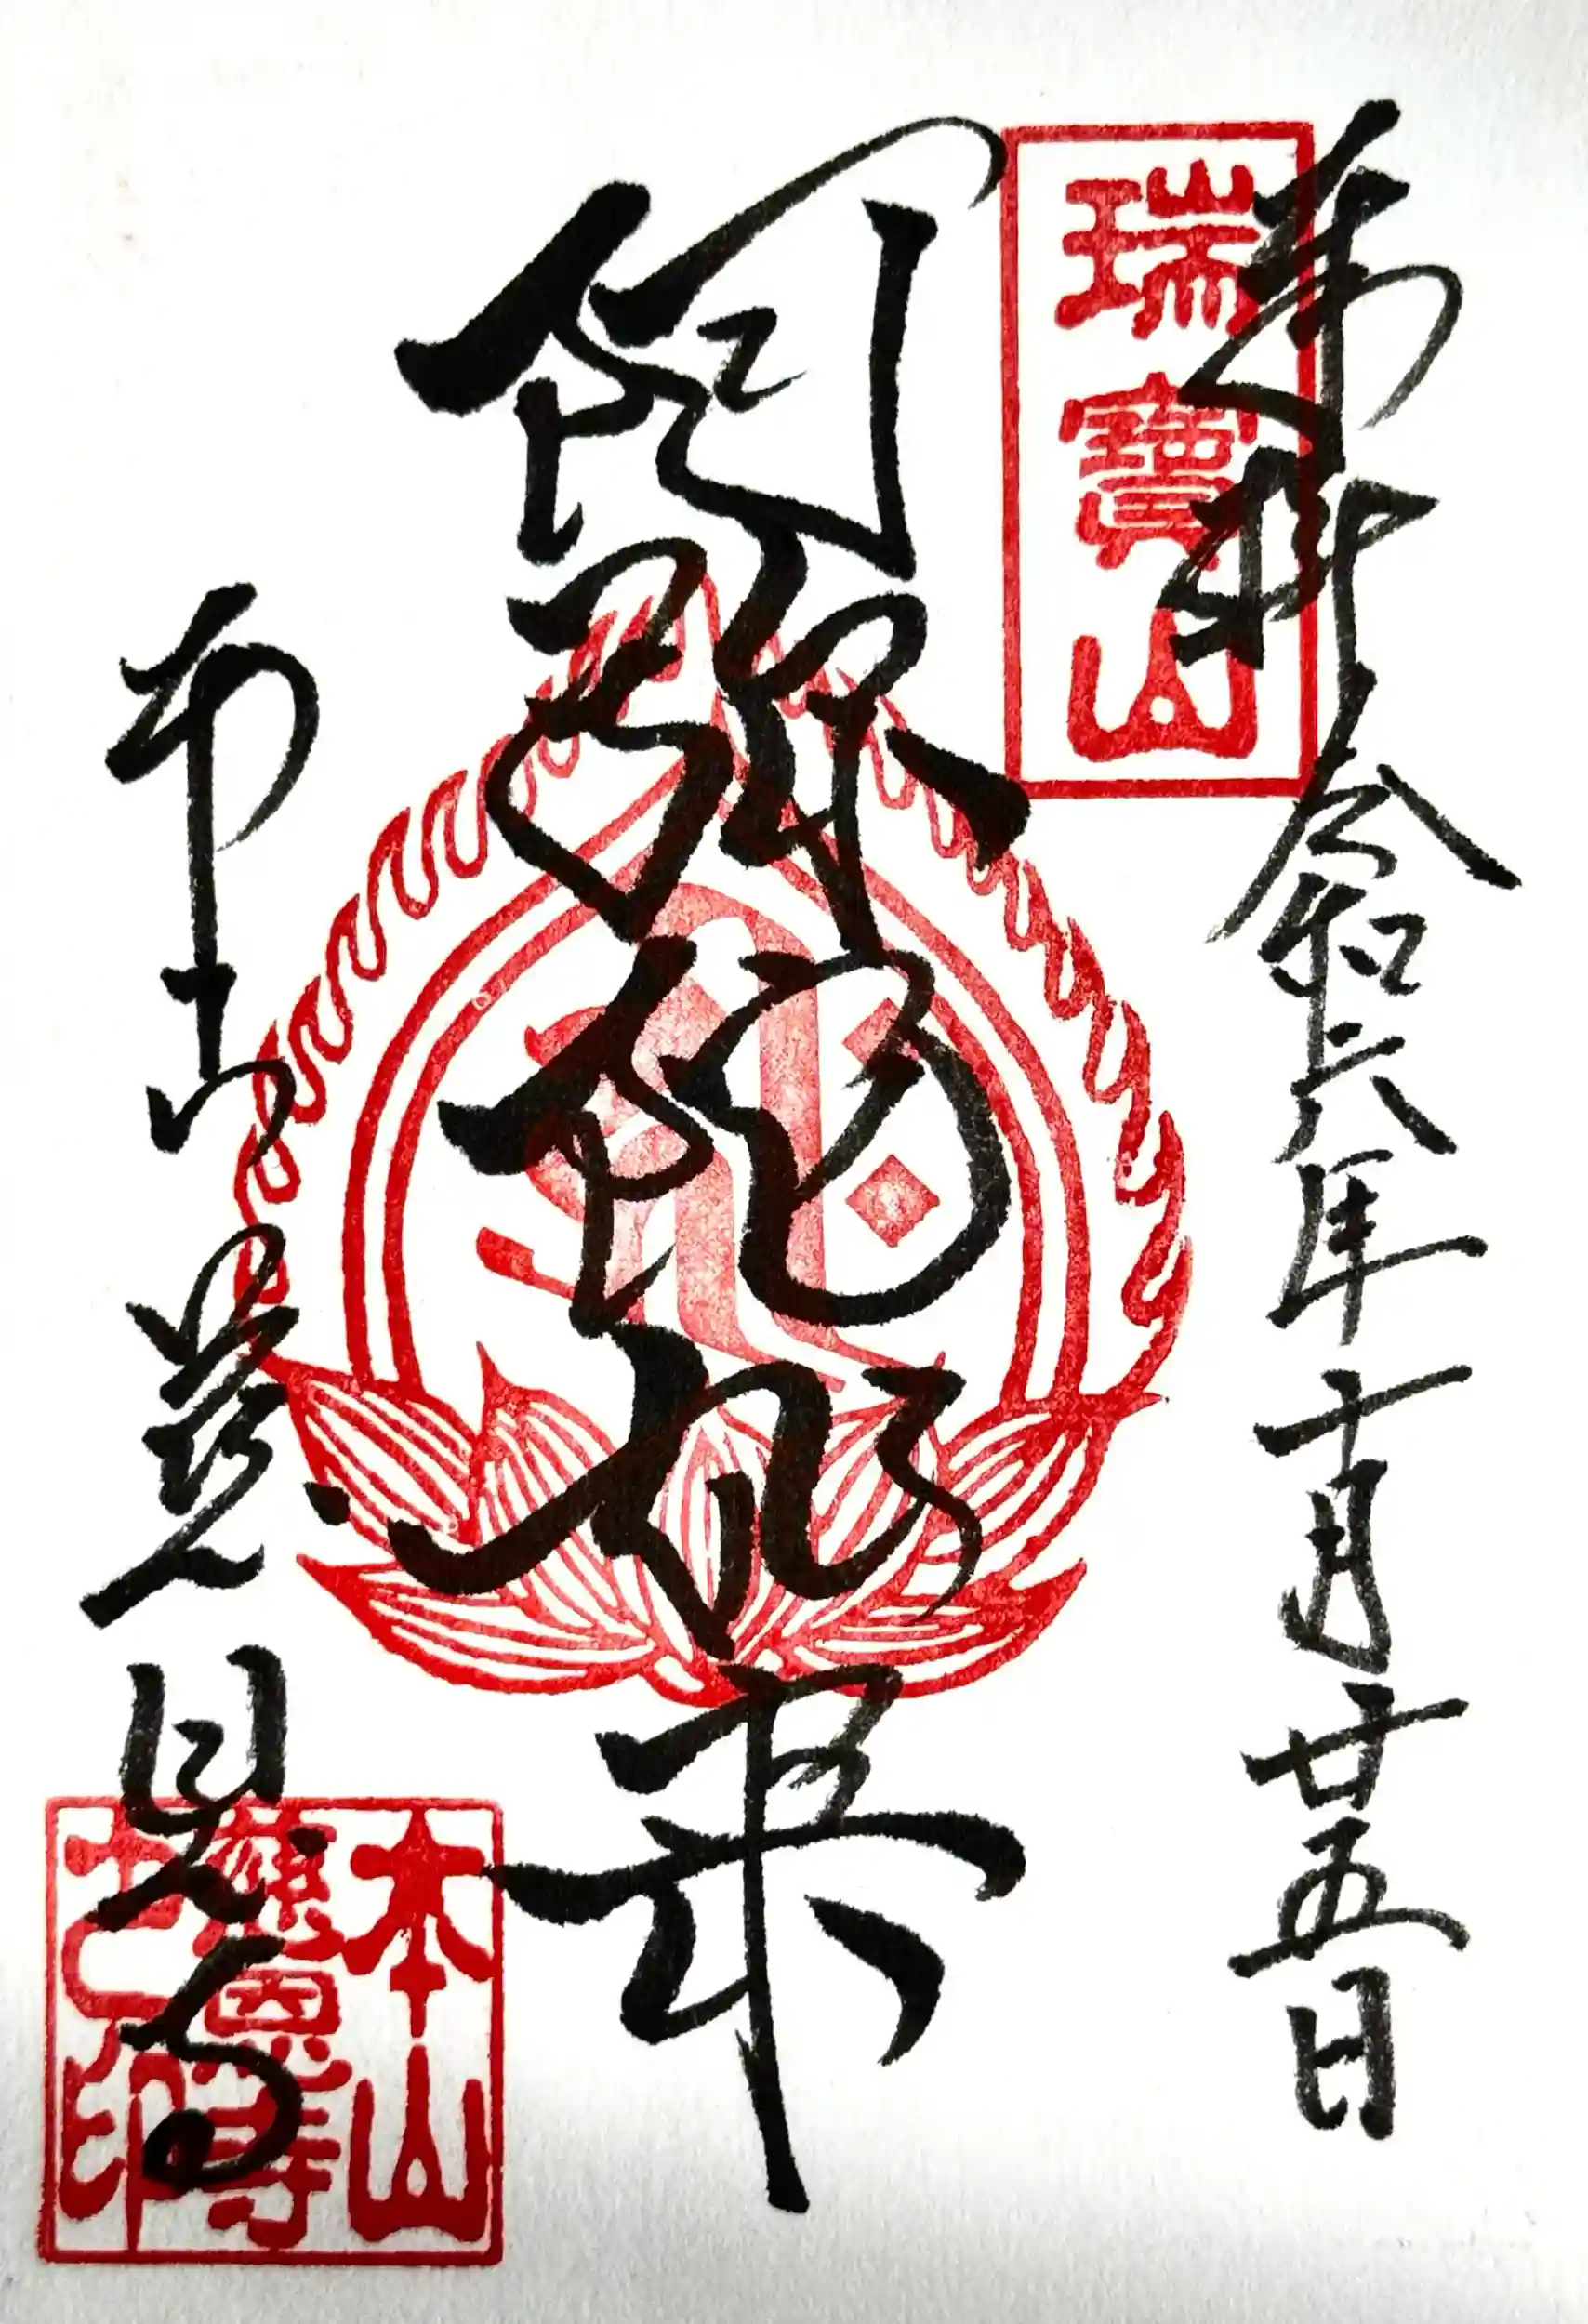 奉拝 令和六年十月廿五日
瑞寶山
阿弥陀如来
本山慈恩寺
本山
慈恩寺
之印